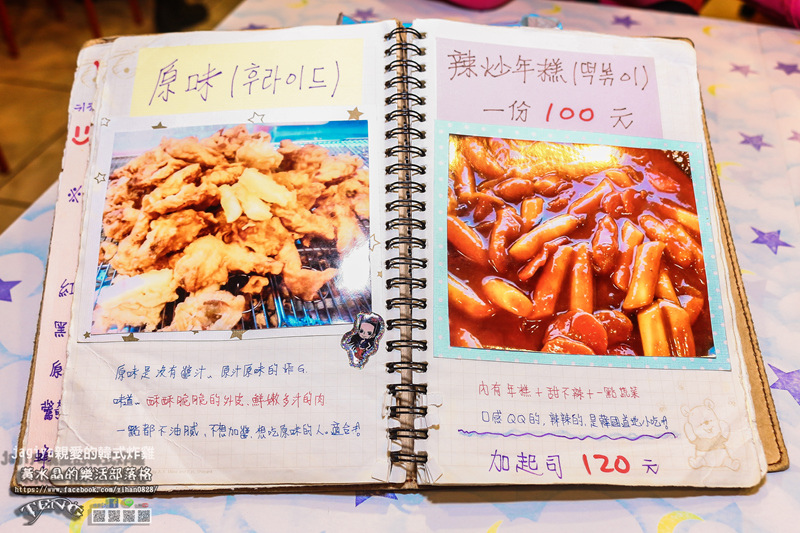 原味(후라이드)
原味是沒有醬汁、原汁原味的炸G.
味道-酥酥脆脆的外皮,鮮嫩多汁的肉
一點都不油膩、不想加醬,想吃原味的人,適合
辣炒年糕(떡볶이)
一份 100 元
內有年糕+甜不辣+一點蔬菜
口感QQ的,辣辣的,是韓國道地小吃
加起司 120 元
黑
原
親愛的韓式炸雞
黃水晶的樂活部落格
https://www.facebook.com/zihan0828/
TENG